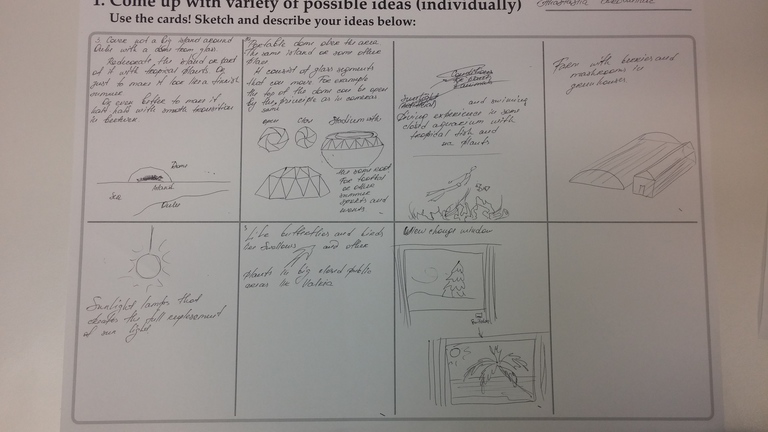 1. Come up with variety of possible ideas (individually)
Use the cards! Sketch and describe your ideas below:
Cover not a big island around
Oulu with a dome from glass.
Redecorate the island or part
of it with tropical plants or
just to make it look like a Finnish
summer
Or even better to make it
half half with smooth transition
in between
Dome
Island
Sea
Oulu
Portable dome over the area
The same island or some other
place
It consist of glass segments
that can move. For example
the top of the dome can be open
by the principle as in cameras
open
Close
Stadium with
the same roof
For football
or other
summer
sports and
events
Conditions
Sunlight
and swimming
Diving experience in some
closed aquarium with
tropical fish and
plants
Farm with berries and
mushrooms in
greenhouses
Sunlight lamps that
creates the full replacement
of sun light
Live butterflies and birds
like swallows and other
plants in big closed public
areas like Valkea
View change window